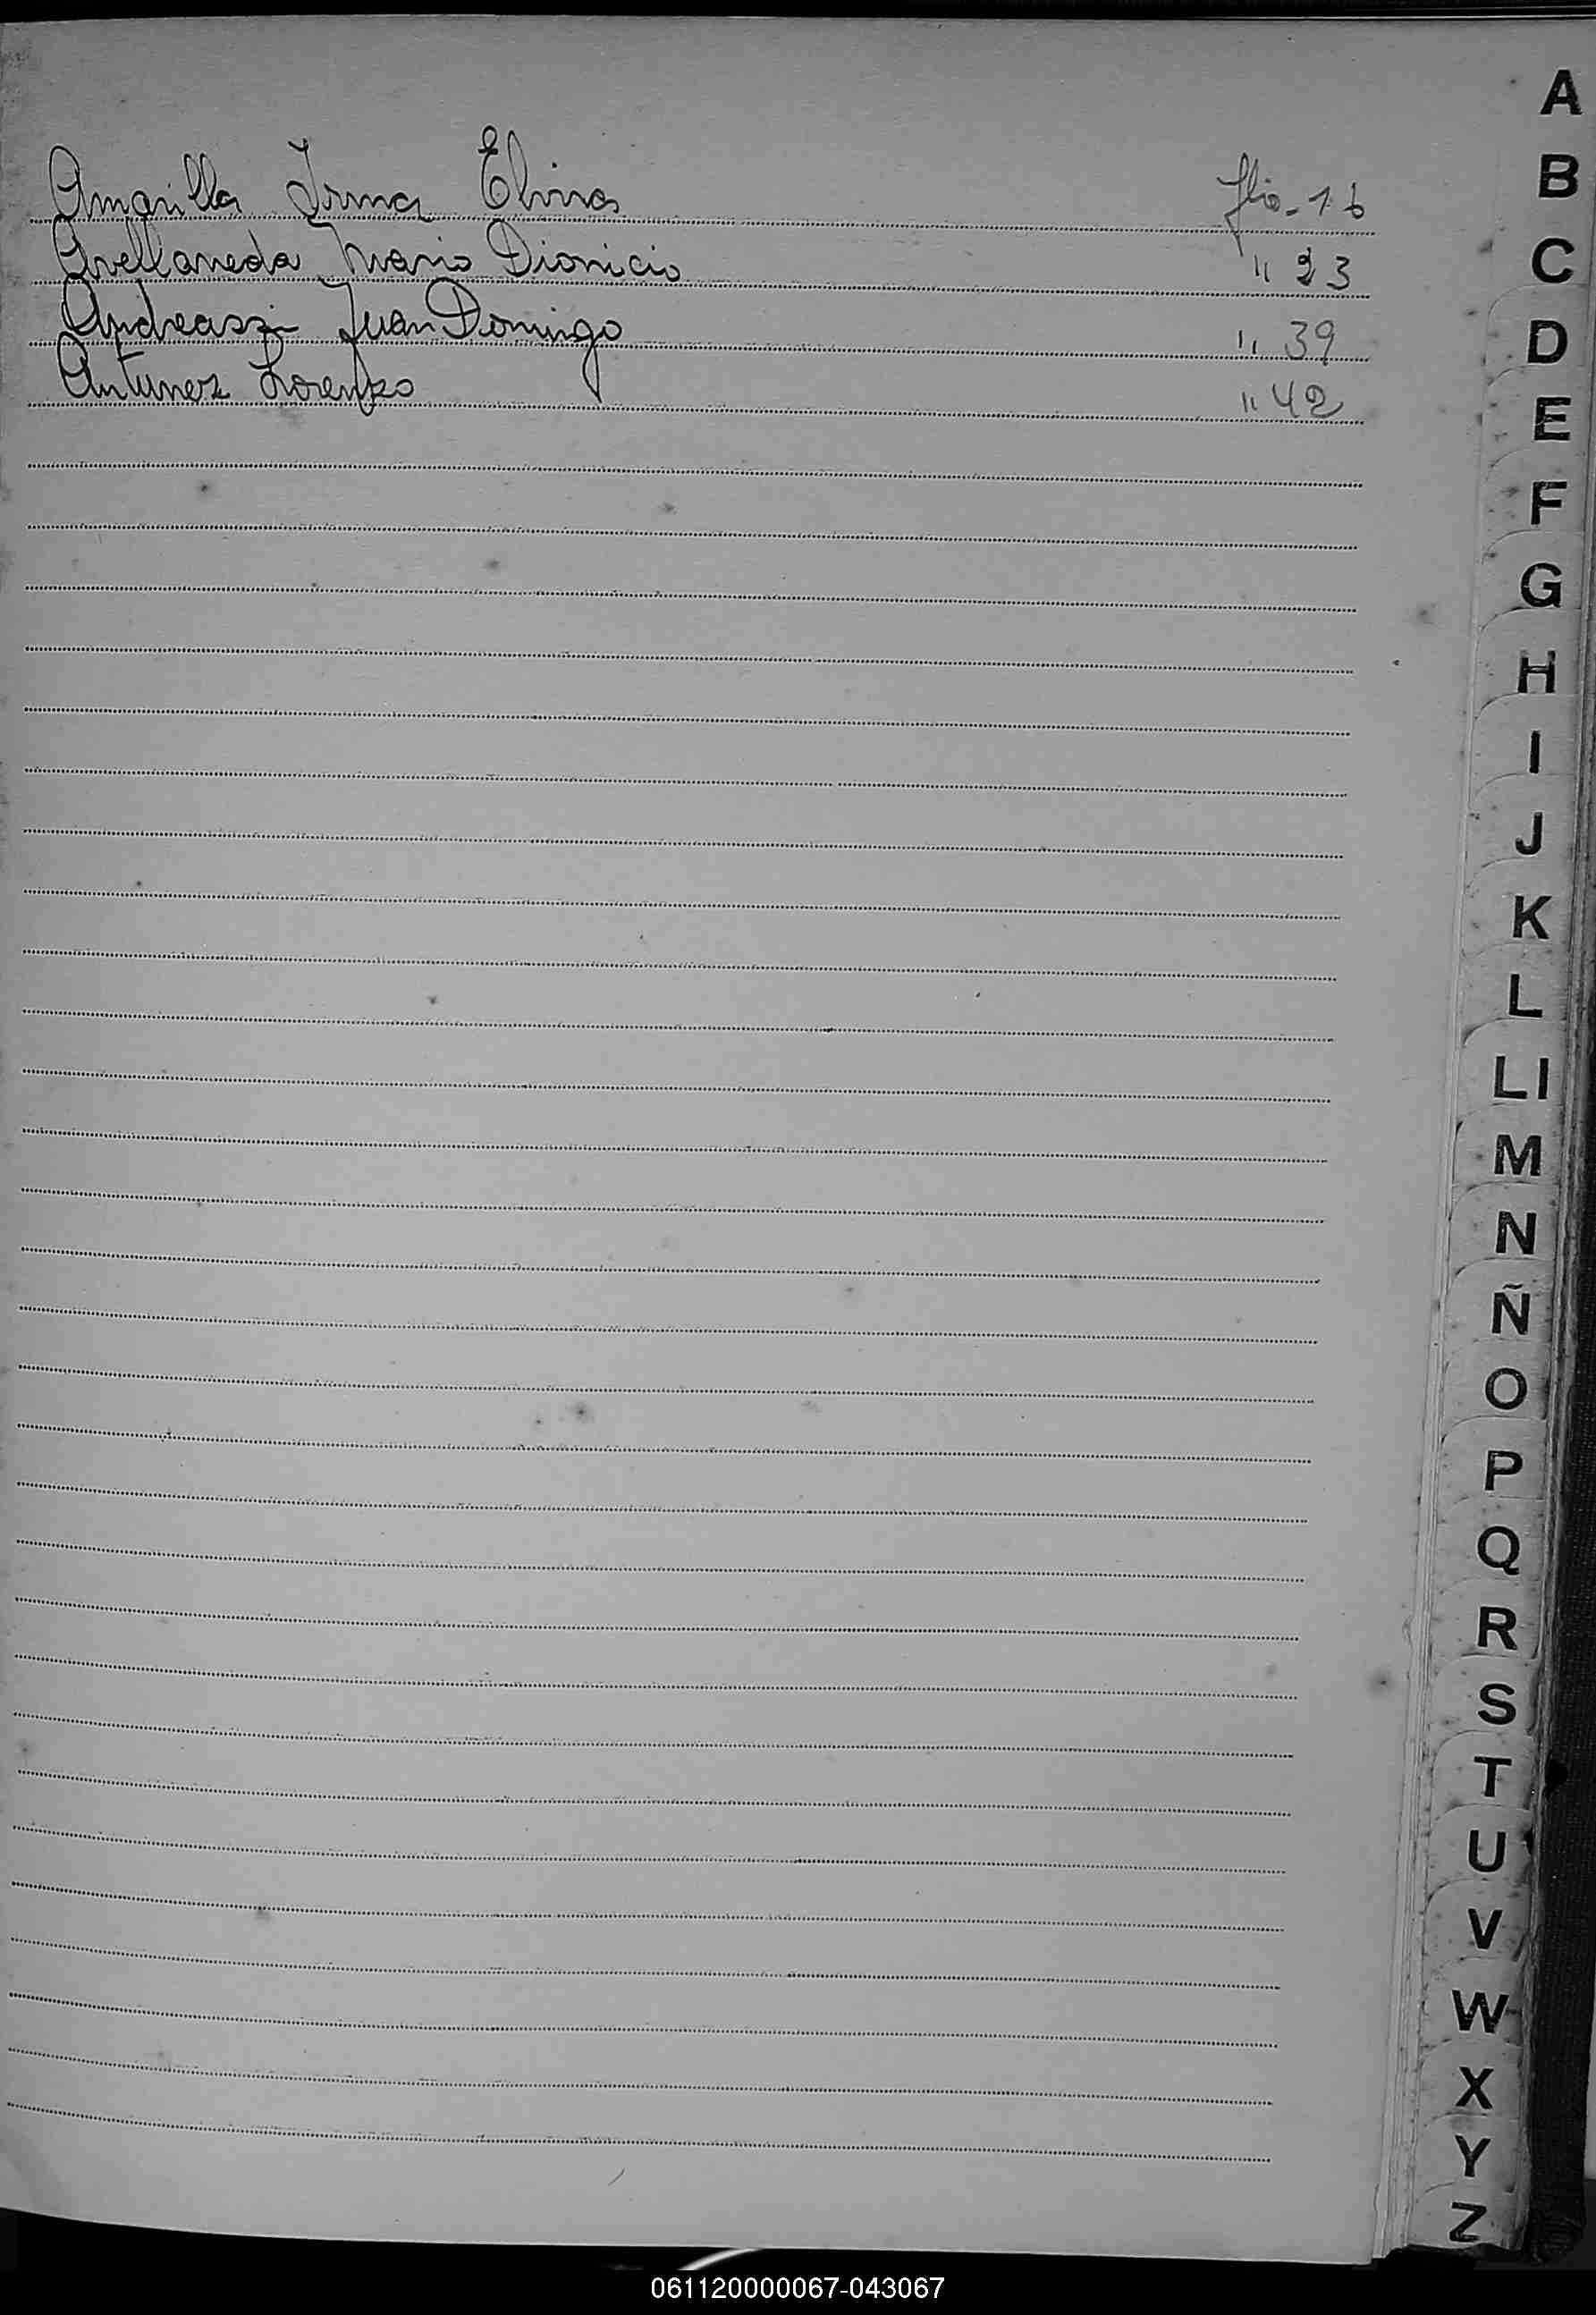 Amarilla Irma Elvira flio-16
Avellaneda Mario Dionicio " 23
Andreazzi Juan Domingo " 39
Antunez Lorenzo " 42
A
B
C
D
E
F
G
H
I
J
K
L
Ll
M
N
Ñ
O
P
Q
R
S
T
U
V
W
X
Y
Z
061120000067-043067